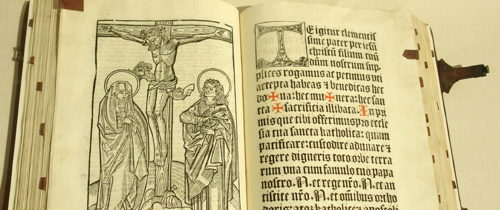 TEigitur clementis
sime pater per iesū
christū filium tuū
dūm nostrum sup
plices rogamus ac petimus uti
accepta habeas & benedicas hec
do✠na: hec mu✠nera: hec san
cta ✠ sacrificia illibata. In pri
mis que tibi offerimus pro eccle
sia tua sancta katholica: quam
pacificare: custodire adunare &
regere digneris toto orbe terra
rum una cum famulo tuo papa
nostro .N. et regenr̄o .N. et an
tistite nr̄o .N. et omībus ortho
doxis atq̄ katholice & apostoli